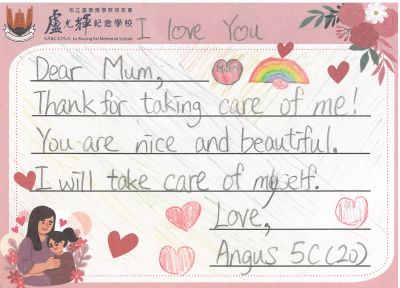 柏立基教育學院校友會
盧光輝紀念學校
S.R.B.C.E.P.S.A. Lu Kwong Fai Memorial School
I love You
Dear Mum,
MUM
Thank for taking care of me!
You are nice and beautiful.
I will take care of myself.
Love,
Angus 5C (20)